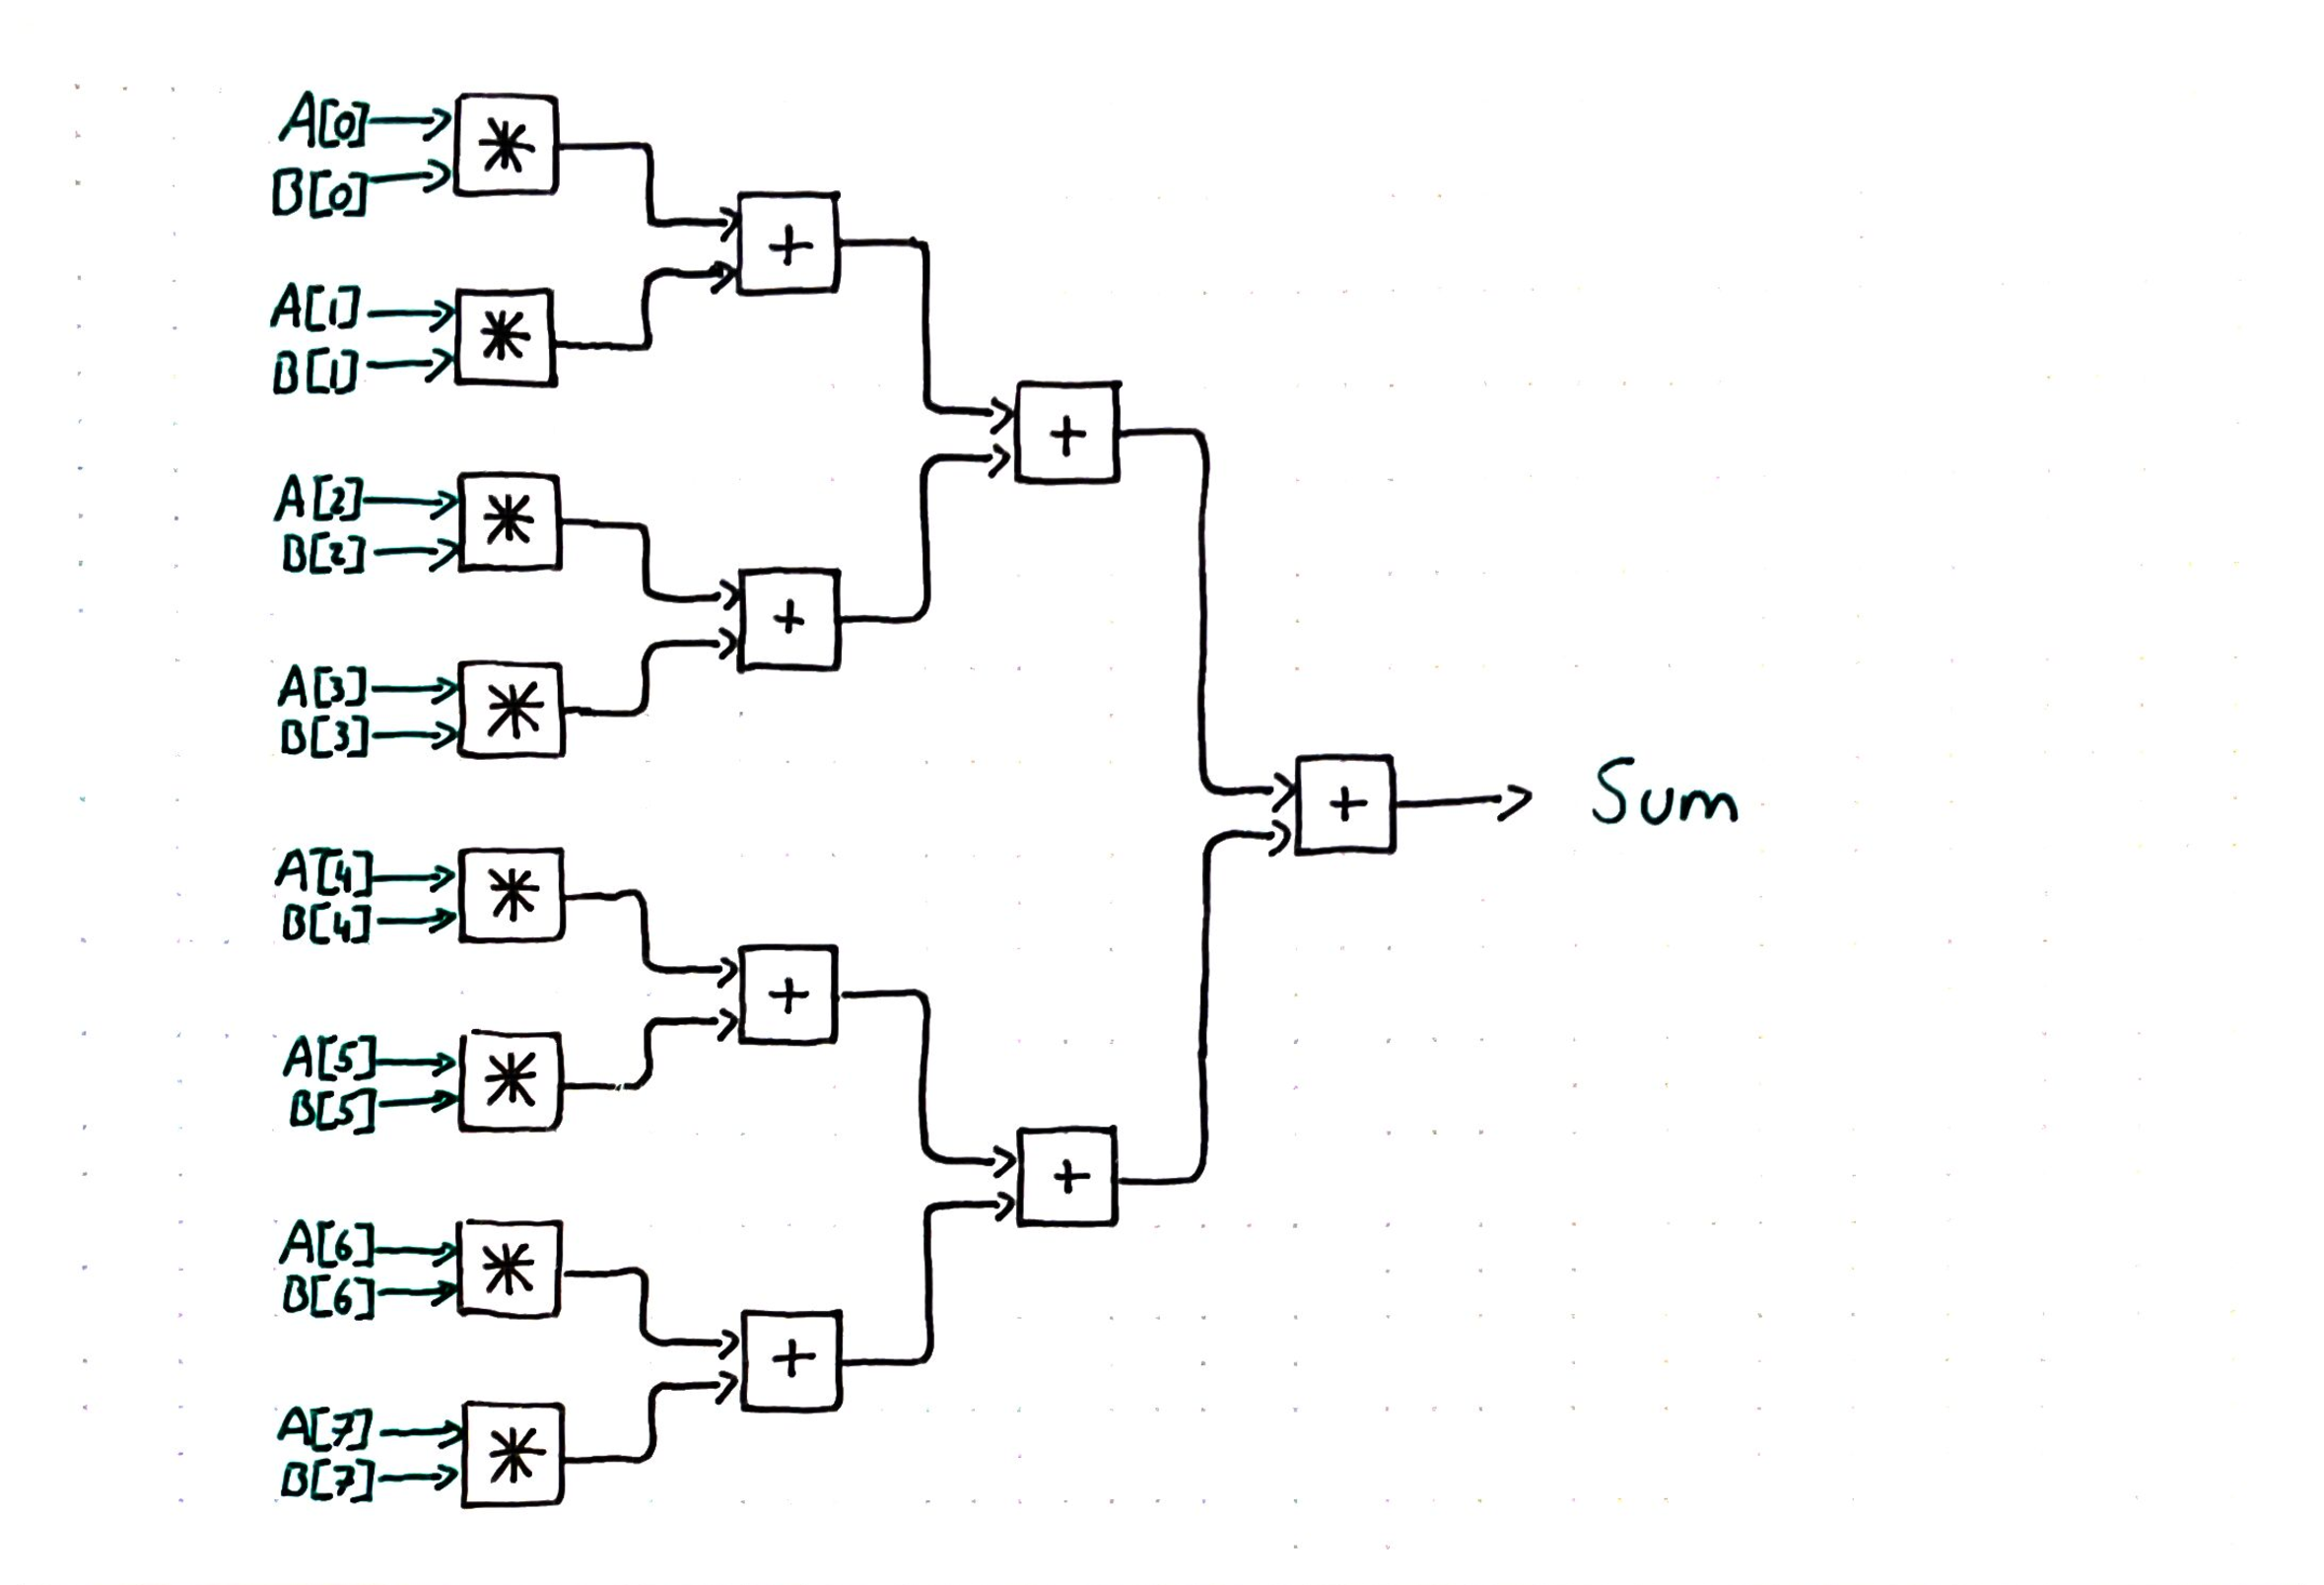 A[0]
*
B[0]
+
A[1]
*
B[1]
+
A[2]
*
B[2]
+
A[3]
*
B[3]
+
Sum
A[4]
*
B[4]
+
A[5]
*
B[5]
+
A[6]
*
B[6]
+
A[7]
*
B[7]